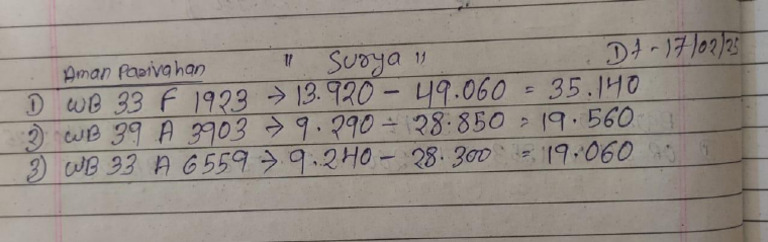 Aman Parivahan " Surya " Dt - 17/02/25
1) WB 33 F 1923 → 13.920 - 49.060 = 35.140
2) WB 39 A 3903 → 9.290 - 28.850 = 19.560
3) WB 33 A 6559 → 9.240 - 28.300 = 19.060